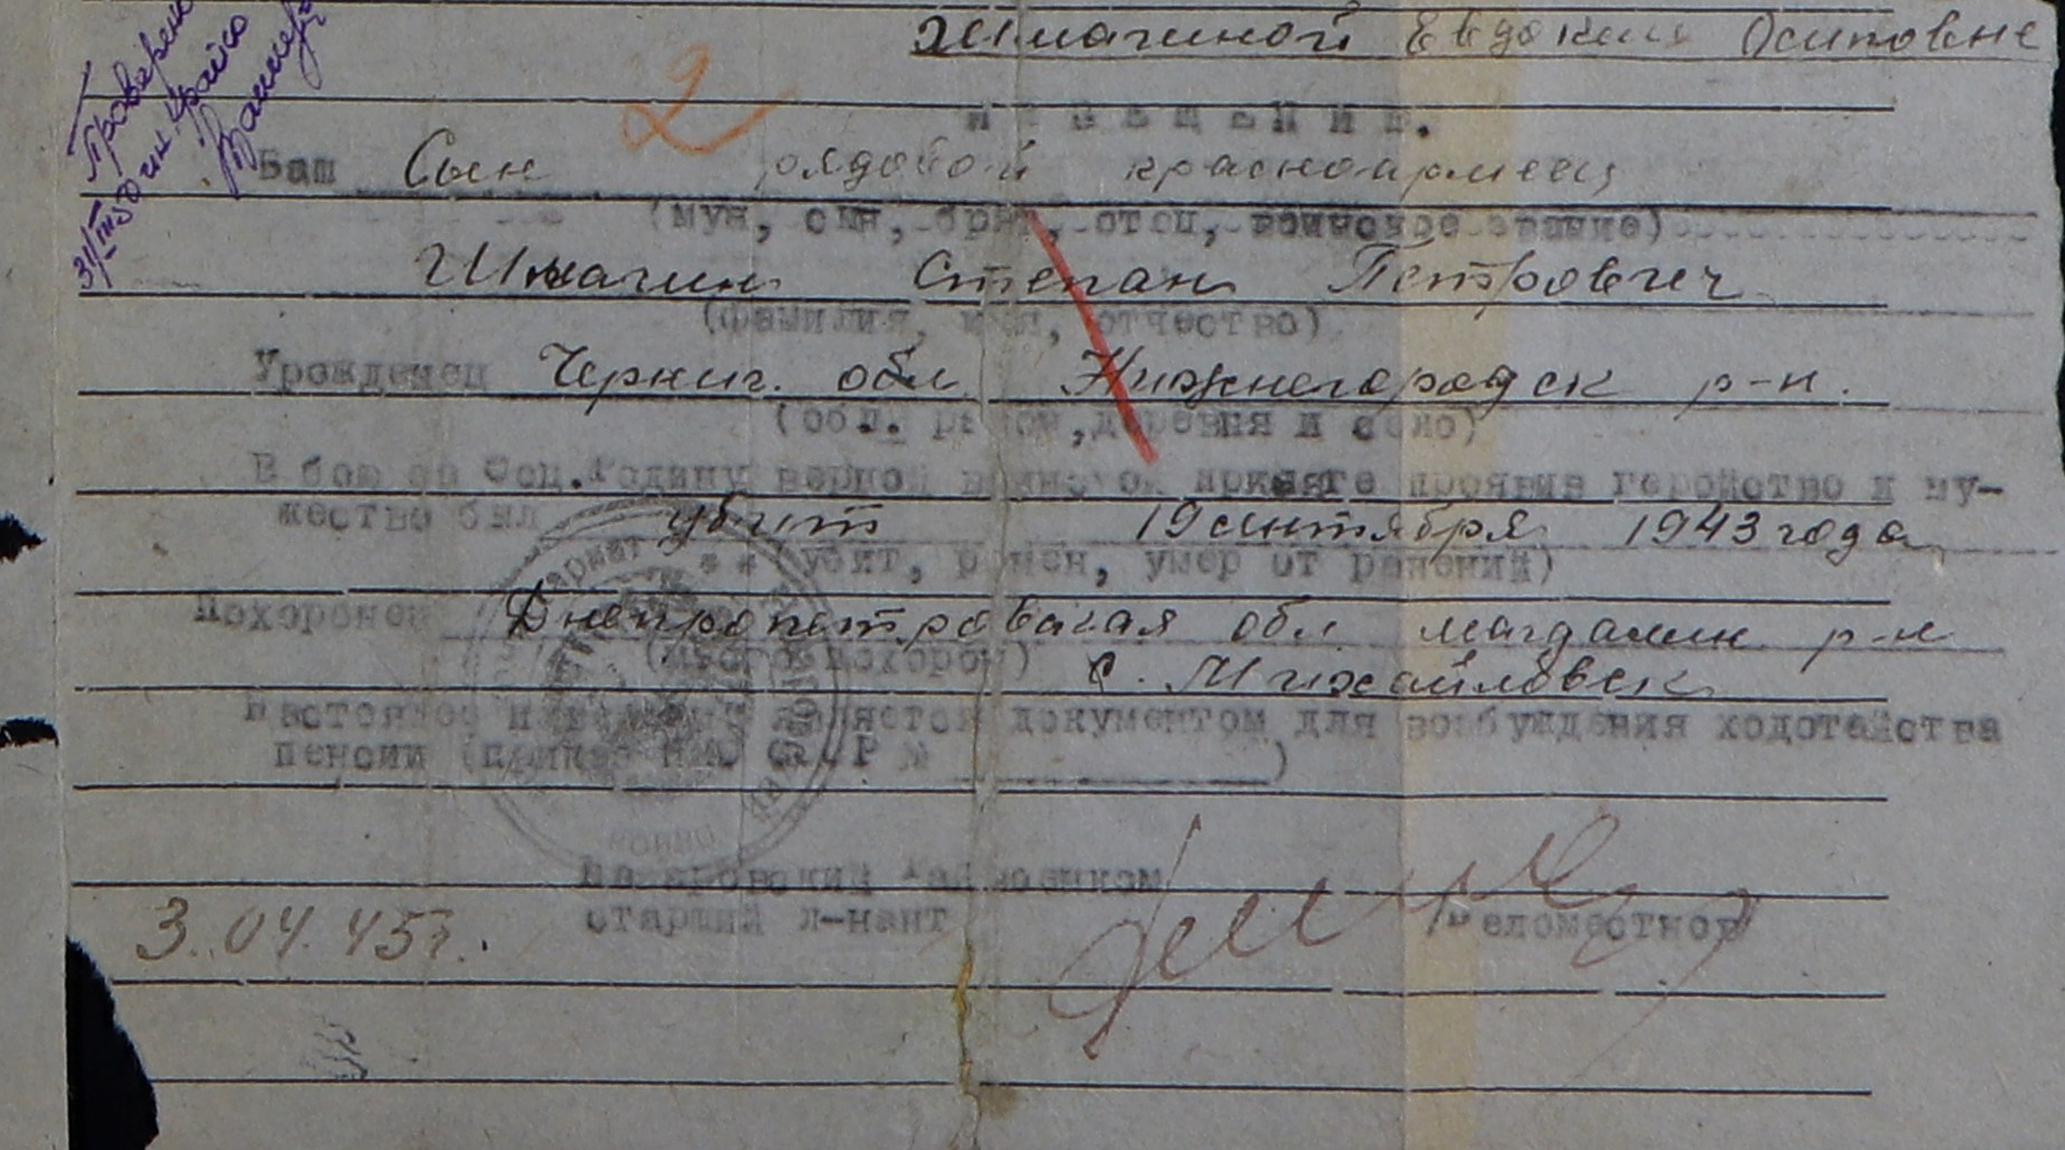 Шмагиной Евдокии Осиповне
ИЗВЕЩЕНИЕ.
Ваш Сын рядовой красноармеец
(муж, сын, брат, отец, воинское звание)
Шмагин Степан Петрович
(фамилия, имя, отчество)
Урожденец Черниг. обл. Нижнегородск р-н.
(обл. район, деревня и село)
В бою за Соц.Родину верной воинской присяге проявив геройство и му-
жество был убит 19 сентября 1943 года
(убит, ранен, умер от ранений)
Похоронен Днепропетровская обл Магдалин р-н
(место похорон)
с. Михайловск
Настоящее извещение является документом для возбуждения ходотайства
пенсии (приказ НКО СССР № ___)
Райвоенком
3.04.45г. старший л-нант Веломестнов
Проверено
2